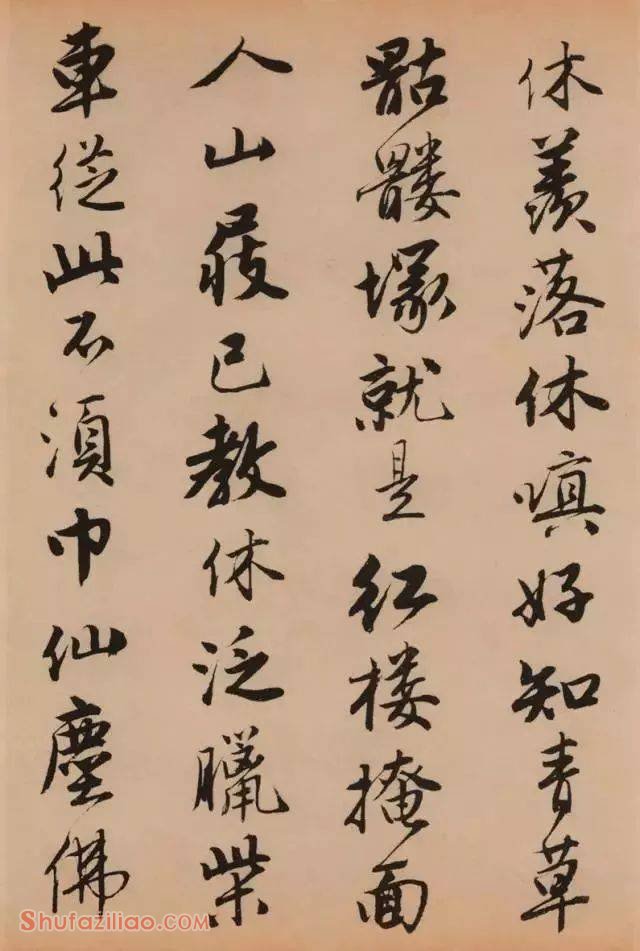 休羨落休嗔好知青草
骷髏塚就是紅樓掩面
人山屐已教休泛臘柴
車從此不須巾仙塵佛
Shufaziliao.COM